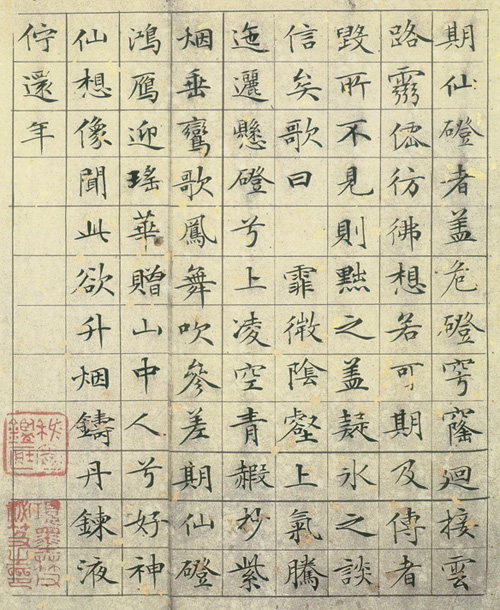 期仙磴者盖危磴穹窿迴接雲
路靈僊彷彿想若可期及傳者
毀所不見則黠之盖疑冰之談
信矣歌曰 霏微陰壑上氣騰
迤邐懸磴兮上凌空青赮杪紫
烟垂鸞歌鳳舞吹參差期仙磴
鴻鴈迎瑤華贈山中人兮好神
仙想像聞此欲升烟鑄丹鍊液
佇還年